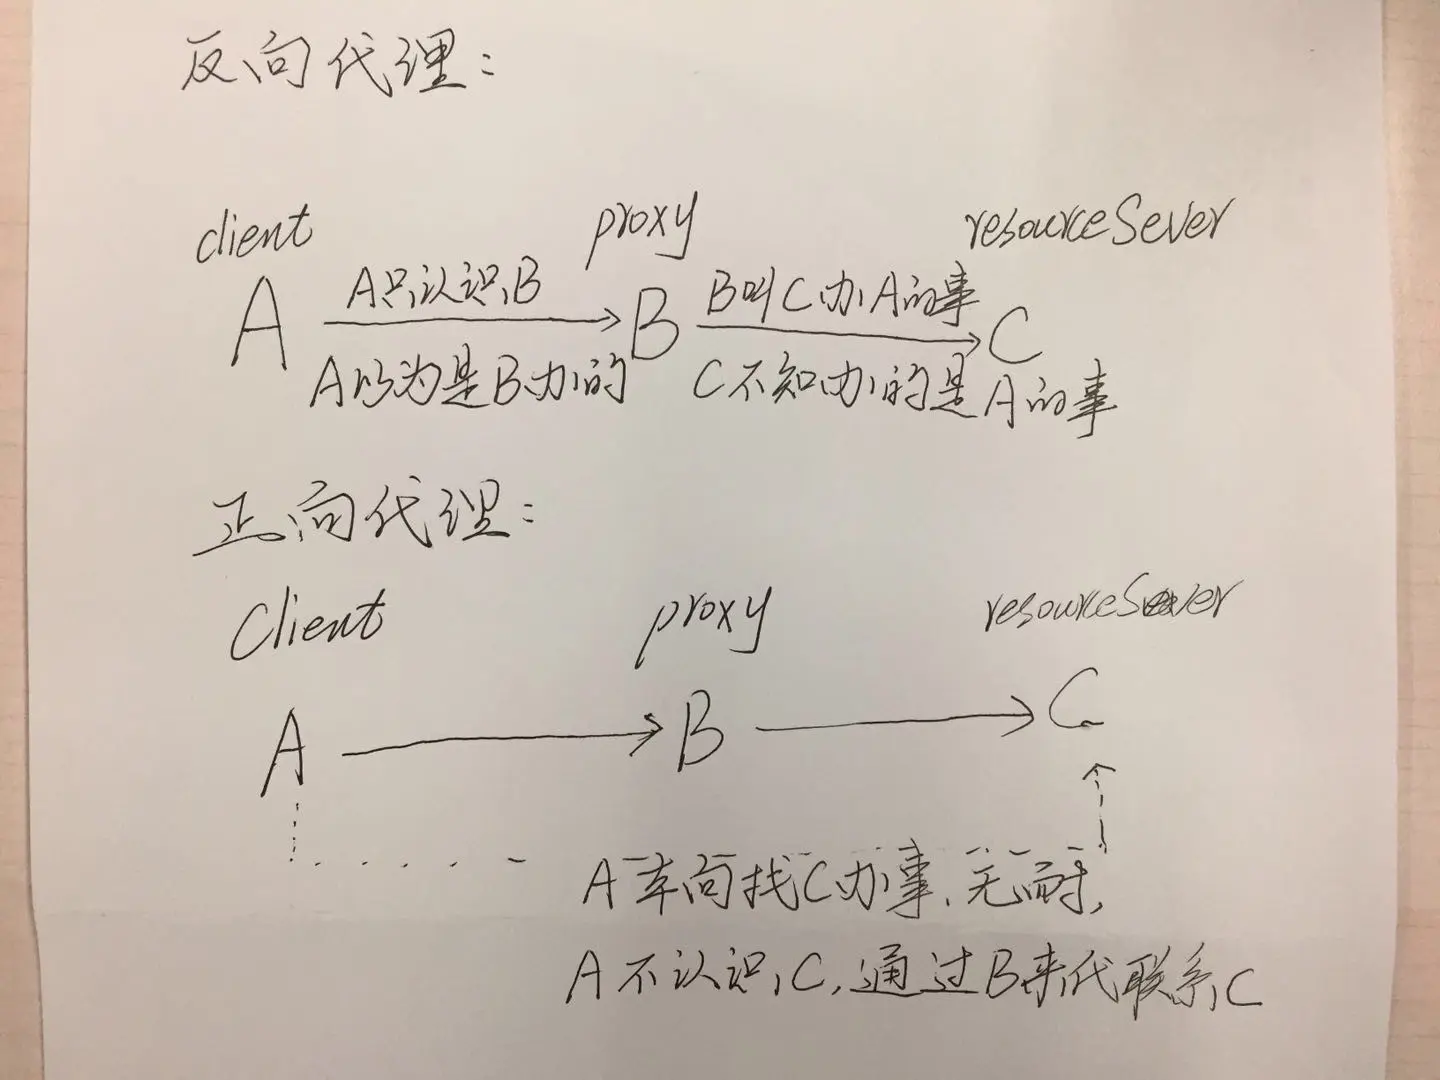 反向代理：
client proxy resourceSever
A只认识B B叫C办A的事
A B C
A以为是B办的 C不知办的是A的事
正向代理：
Client proxy resourceSever
A B C
A 向找C办事、无耐，
A不认识C，通过B来代联系C